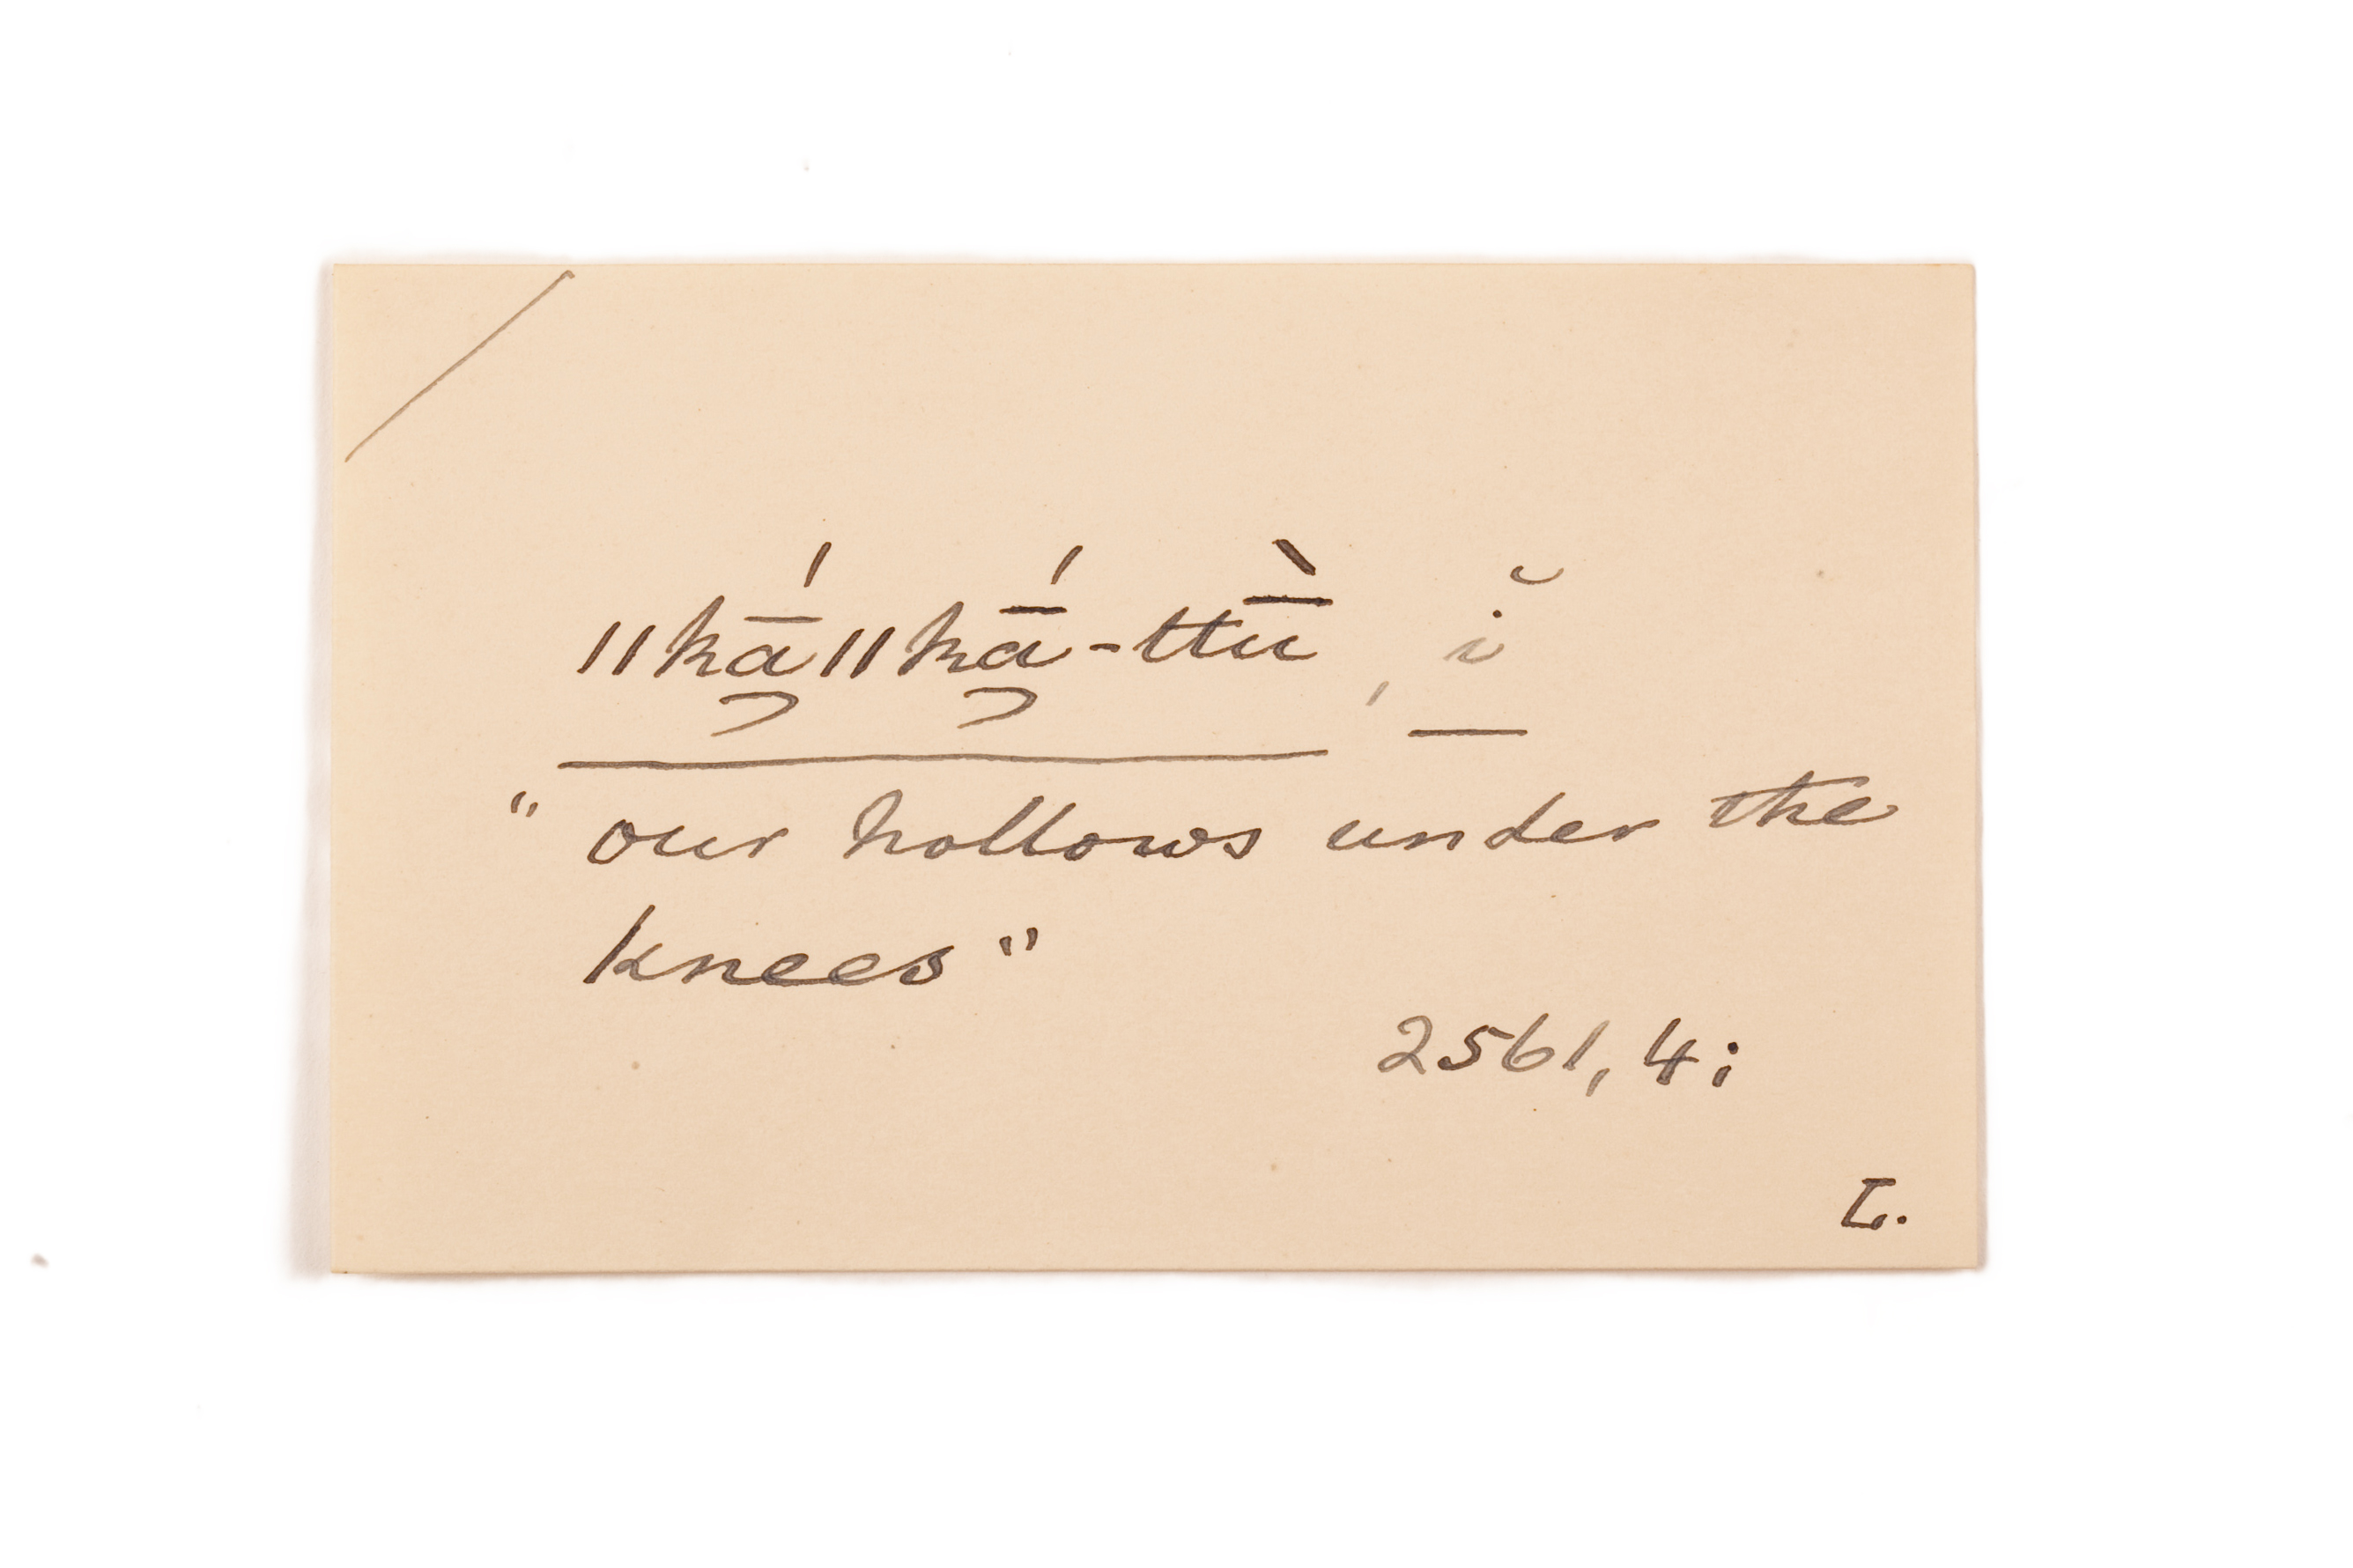 ǁkā̦́ǁkā̦́-ttū̀, ĭ
"our hollows under the
knees"
2561, 4;
L.